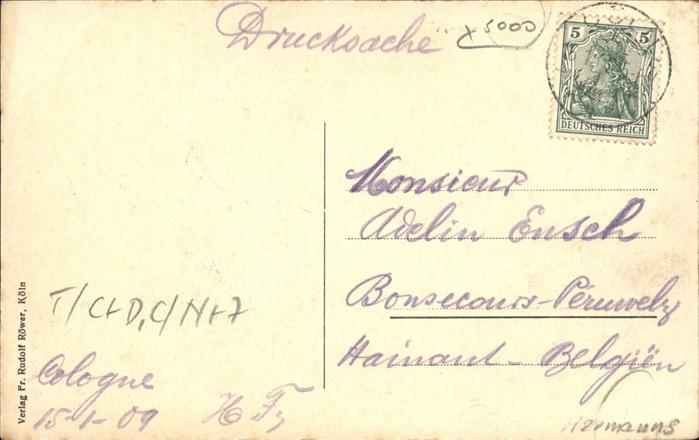 Drucksache
x 5000
5 5
DEUTSCHES REICH
Monsieur
Adelin Ensch
Bonsecours-Péruwelz
Hainaut - Belgiën
T/C+D,C/N+7
Cologne
15-1-09 H F
Hermanns
Verlag Fr. Rudolf Röwer, Köln